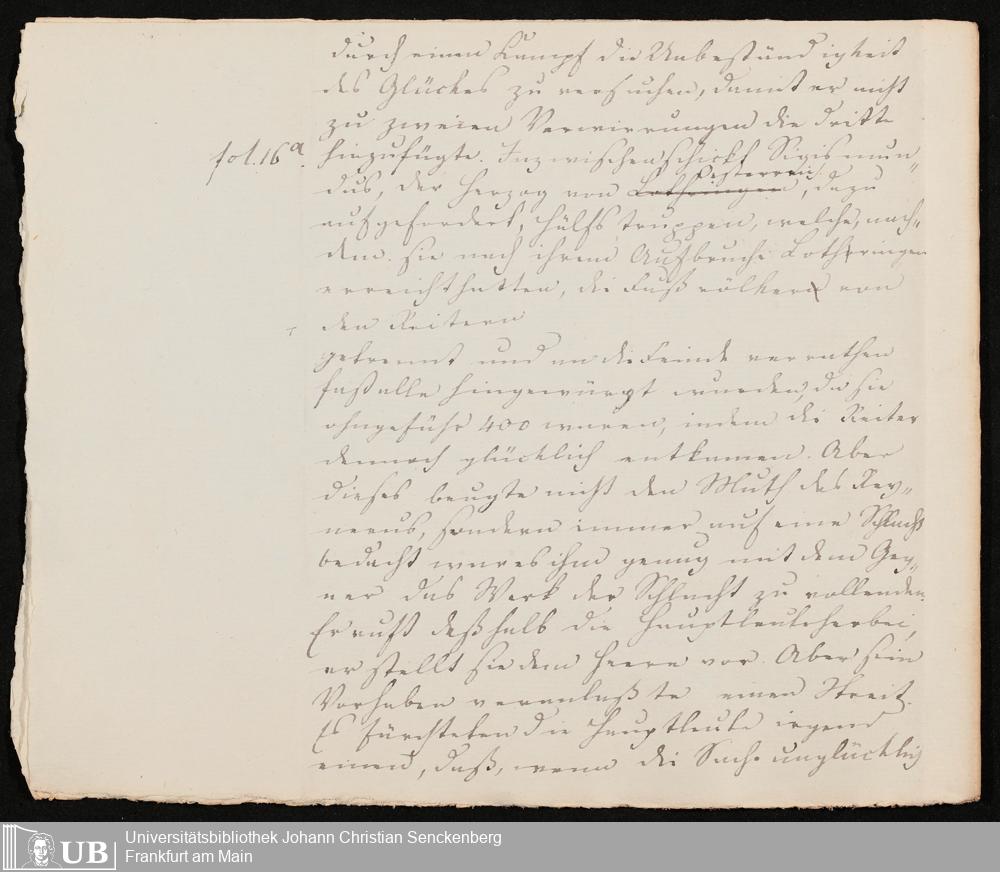 durch einen Kampf die Unbeständigkeit
des Glückes zu versuchen, damit er nicht
zu zweien Verwirrungen die dritte
fol. 16a. hinzufügte. Inzwischen schickt Sigismun„
dus, der Herzog von Lothringen Oesterreich, dazu
aufgefordert, Hülfstruppen, welche, nach„
dem sie nach ihrem Aufbruche Lothringen
erreicht hatten, die Fußvölker von
den Reitern
getrennt und an die Feinde verrathen
fast alle hingewürgt wurden, da sie
ohngefähr 400 waren, indem die Reiter
dennoch glücklich entkamen. Aber
dieses beugte nicht den Muth des Rey„
nerus, sondern immer auf eine Schlacht
bedacht war es ihm genug mit dem Geg„
ner das Werk der Schlacht zu vollenden.
Er ruft deßhalb die Hauptleute herbei,
er stellt sie dem Heere vor. Aber sein
Vorhaben veranlaßte einen Streit.
Es fürchteten die Hauptleute irgend
einen, daß, wenn die Sache unglücklich
Universitätsbibliothek Johann Christian Senckenberg
Frankfurt am Main
UB